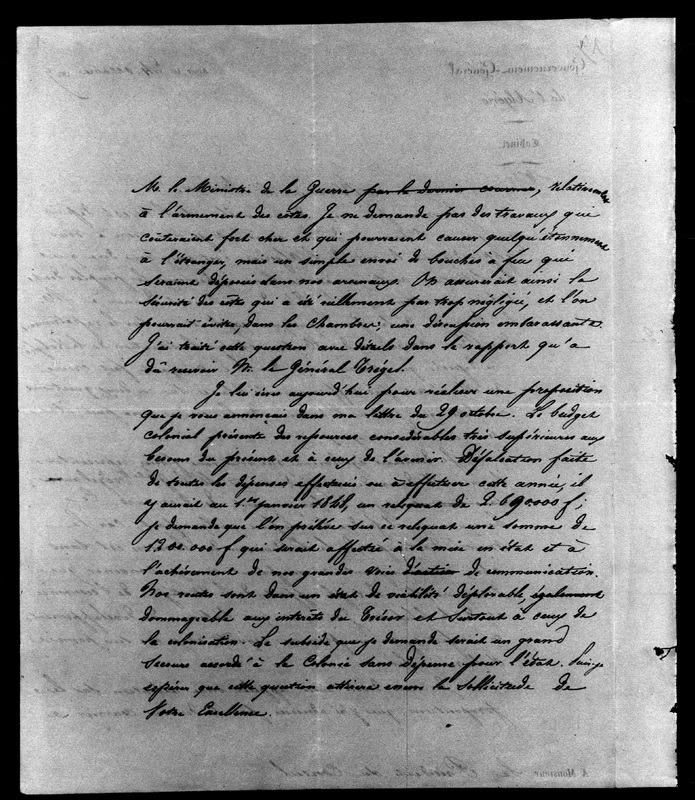 M. le Ministre de la Guerre par le dernier courrier, relativement
à l'armement des côtes. Je ne demande pas des travaux qui
coûteraient fort cher et qui pourraient causer quelqu'étonnement
à l'étranger, mais un simple envoi de bouches à feu qui
seraient déposées dans nos arsenaux. On assurerait ainsi la
sécurité des côtes qui a été réellement par trop négligée, et l'on
pourrait éviter, dans les Chambres, une discussion embarassante.
J'ai traité cette question avec détails dans le rapport qu'a
dû recevoir M. le Général Trézel.
Je lui écris aujourd'hui pour réclamer une proposition
que je vous annonçais dans ma lettre du 29 octobre. Le budget
colonial présente des ressources considérables très supérieures aux
besoins du présent et à ceux de l'avenir. Défalcation faite
de toutes les dépenses effectuées ou à effectuer cette année, il
y aurait au 1er janvier 1848, un reliquat de 2.690.000 f;
je demande que l'on prélève sur ce reliquat une somme de
1.200.000 f qui serait affectée à la mise en état et à
l'achèvement de nos grandes voies de communication.
Nos routes sont dans un état de viabilité déplorable, également
dommageable aux intérêts du Trésor et surtout à ceux de
la colonisation. Le subside que je demande serait un grand
secours accordé à la Colonie sans dépense pour l'état. Puis-je
espérer que cette question attirera encore la sollicitude de
Votre Excellence.
Gouvernement-Général
de l'Algérie
Cabinet
A Monsieur le Président du Conseil